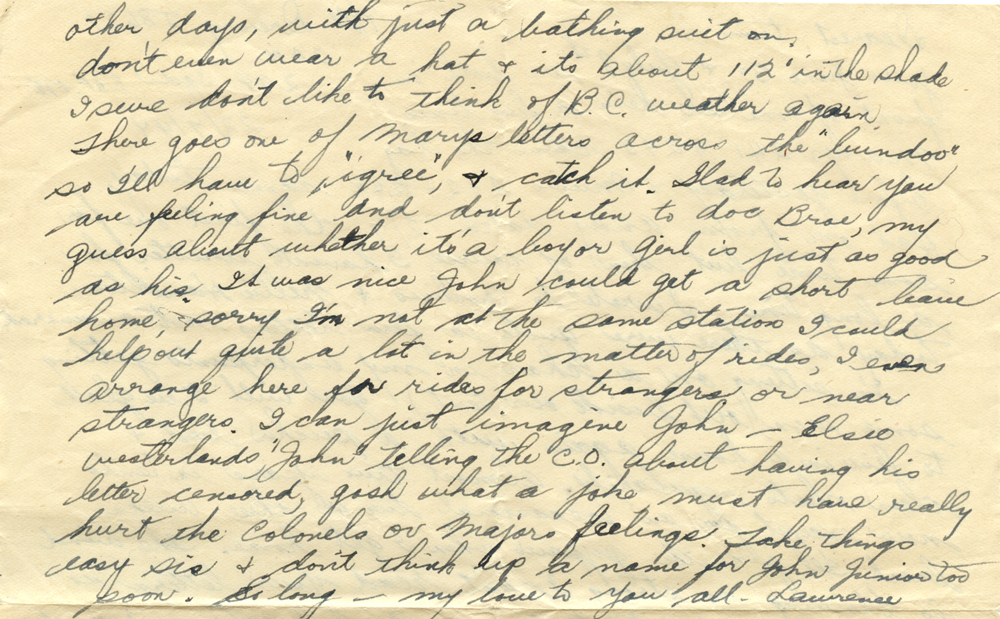 other days, with just a bathing suit on,
don't even wear a hat & it's about 112° in the shade
I sure don't like to think of B.C. weather again
There goes one of Marys letters across the "bundoo"
so I'll have to "igree", & catch it. Glad to hear you
are feeling fine and don't listen to doc Broe, my
guess about whether it's a boy or girl is just as good
as his. It was nice John could get a short leave
home, sorry I'm not at the same station I could
help out quite a lot in the matter of rides, I even
arrange here for rides for strangers or near
strangers. I can just imagine John — Elsie
Westerlands, "John" telling the C.O. about having his
letter censored, gosh what a joke must have really
hurt the Colonels or Majors feelings. Take things
easy sis & don't think up a name for John Junior too
soon. So long — my love to you all - Lawrence